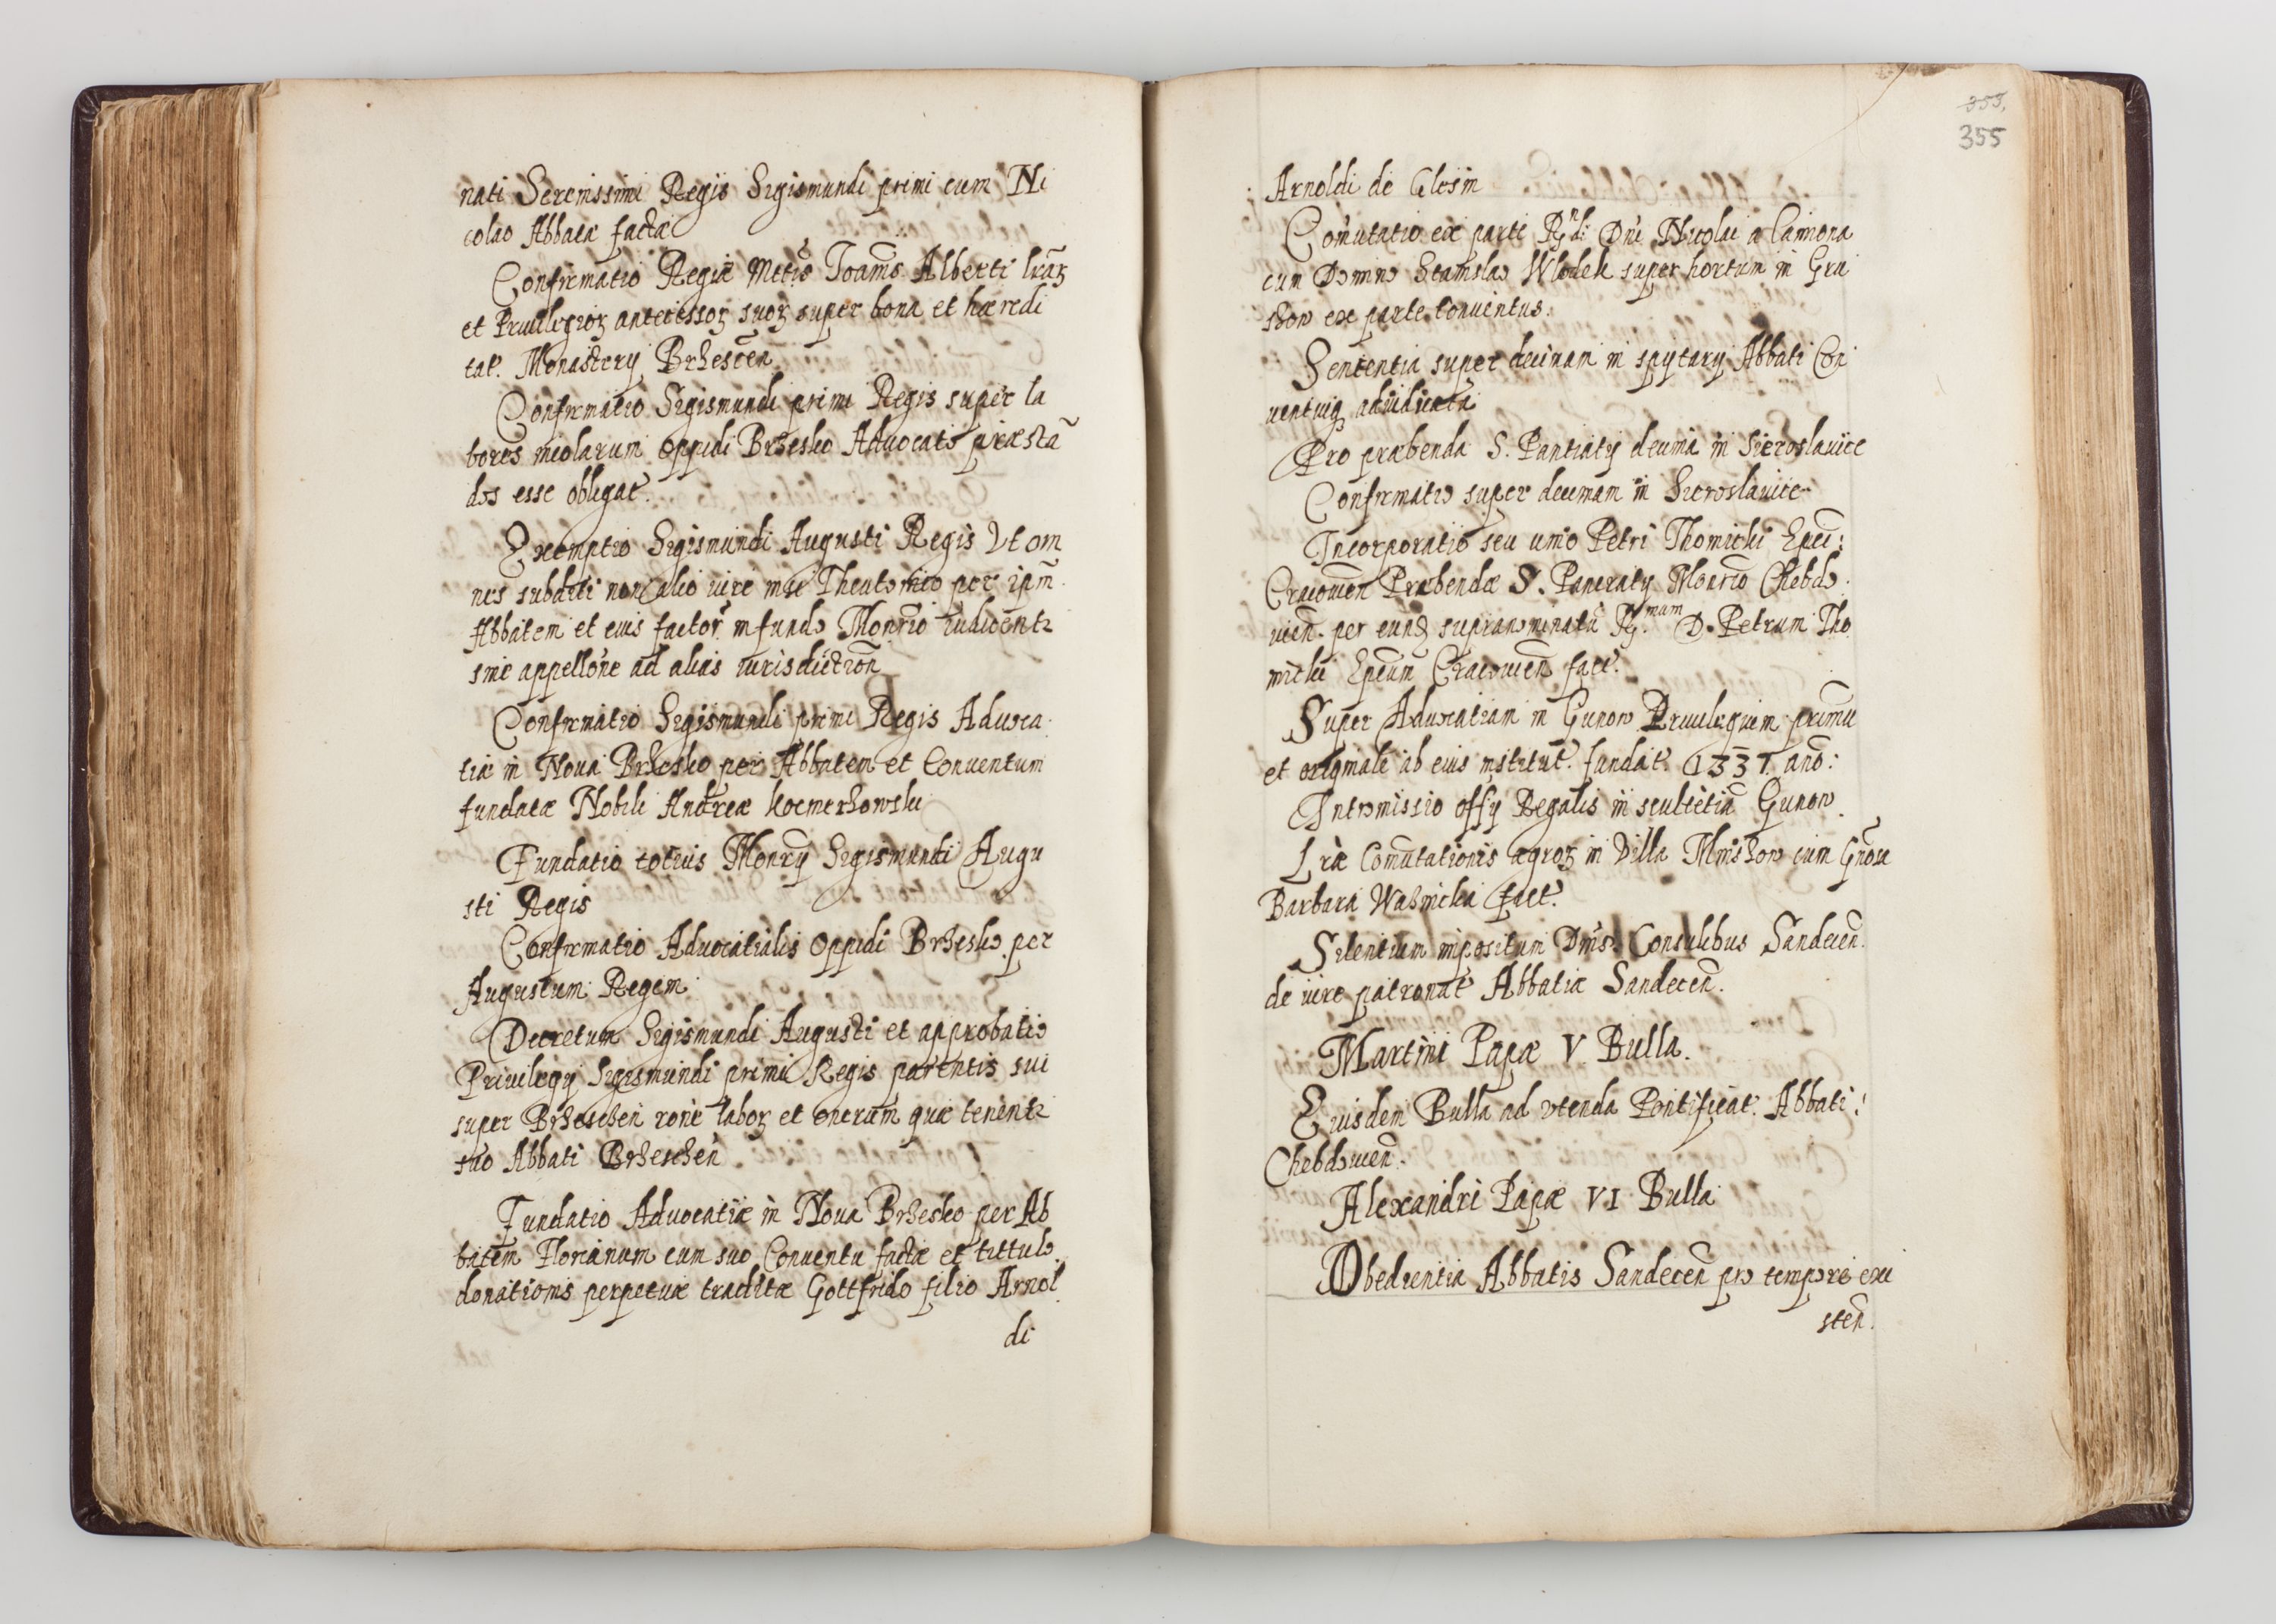 nati Serenissimi Regis Sigismundi primi cum Ni
colao Abbate factæ
Confirmatio Regiæ Mttis Joañis Alberti lrãꝝ
et Priuilegioꝝ antecessoꝝ suoꝝ super bona et hæredi
tat. Monastery Brhescen̄
Confirmatio Sigismundi primi Regis super la
bores incolarum oppidi Brhesko Aduocato præstā
dos esse obligat.
Exemptio Sigismundi Augusti Regis Vt om
nes subditi non alio iure nisi Theutonico per ipm̄
Abbatem et eius factor̄ in fundo Monrio iudicentr
sine appellōne ad alias iurisdiction̄
Confirmatio Sigismundi primi Regis Aduoca
tiæ in Noua Brhesko per Abbatem et Conuentum
fundatæ Nobili Andreæ Kocmerhowski
Fundatio totius Monry Sigismundi Augu
sti Regis
Confirmatio Aduocatialis oppidi Brhesko per
Augustum Regem
Decretum Sigismundi Augusti et approbatio
Priuilegy Sigismundi primi Regis parentis sui
super Brheschen rōne laboꝝ et onerum quæ tenentr
suo Abbati Brheschen̄
Fundatio Aduocatiæ in Noua Brhesko per Ab
batem Florianum cum suo Conuentu factæ et tittulo
donationis perpetuæ traditæ Gottfrido filio Arnol
di
355,
355
Arnoldi de Clesin
Com̄utatio ex parte Rndi Dni Nicolai a
cum Domino Stanislao Wlodek super hortum in Gru
show ex parte Conuentus.
Sententia super decimam in spytary Abbati Con
uentuiq adiudicata
Pro præbenda S. Pantiaty decima in Sieroslauice
Confirmatio super decimam in Sieroslauice
Incorporatio seu unio Petri Thomichi Epci:
Cracouien̄ Præbendæ S. Pancraty Moñrio Chebdo
uien̄. per eund supranominatū Rmum D. Petrum Tho
michi Epcum Cracouien̄ fact.
Super Aduocatiam in Gunow Priuilegium primū
et originale ab eius institut. fundat. 1337. anō:
Intromissio offy Regalis in scultetiā Gunow
Lræ Com̄utationis agroꝝ in Villa Minshow cum Gnōsa
Barbara Wasincka fact.
Silentium impositum Dnis Consulibus Sandecen̄.
de iure patronat Abbatiæ Sandecen̄.
Martini Papæ V Bulla.
Eiusdem Bulla ad vtenda Pontificat. Abbati:
Chebdouien̄.
Alexandri Papæ VI Bulla
Obedientia Abbatis Sandecen̄ pro tempore exi
sten̄.